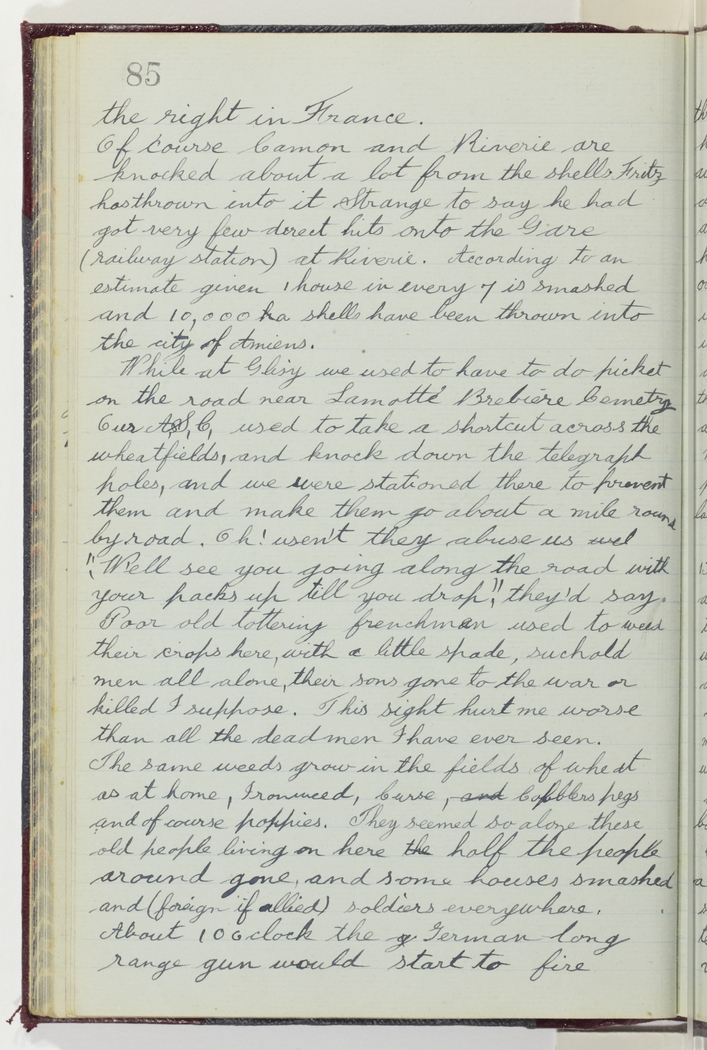 85
the right in France.
Of course Camon and Riverie are
knocked about a lot from the shells Fritz
has thrown into it Strange to say he had
got very few direct hits onto the Gare
(railway station) at Riverie. According to an
estimate given 1 house in every 7 is smashed
and 10,000 ha shells have been thrown into
the city of Amiens.
While at Glisy we used to have to do picket
on the road near Lamotte Brebiere Cemetry
Our A.S.C, used to take a shortcut across the
wheatfields, and knock down the telegraph
poles, and we were stationed there to prevent
them and make them go about a mile round
by road. Oh! usen't they abuse us
"We'll see you going along the road with
your packs up till you drop", they'd say.
Poor old tottering frenchmen used to weed
their crops here, with a little spade, such old
men all alone, their sons gone to the war or
killed I suppose. This sight hurt me worse
than all the dead men I have ever seen.
The same weeds grow in the fields of wheat
as at home, Ironweed, Curse, and Cobblers pegs
and of course poppies. They seemed so alone these
old people living on here the half the people
around gone, and some houses smashed
and (foreign if allied) soldiers everywhere.
About 10 Oclock the g German long
range gun would start to fire